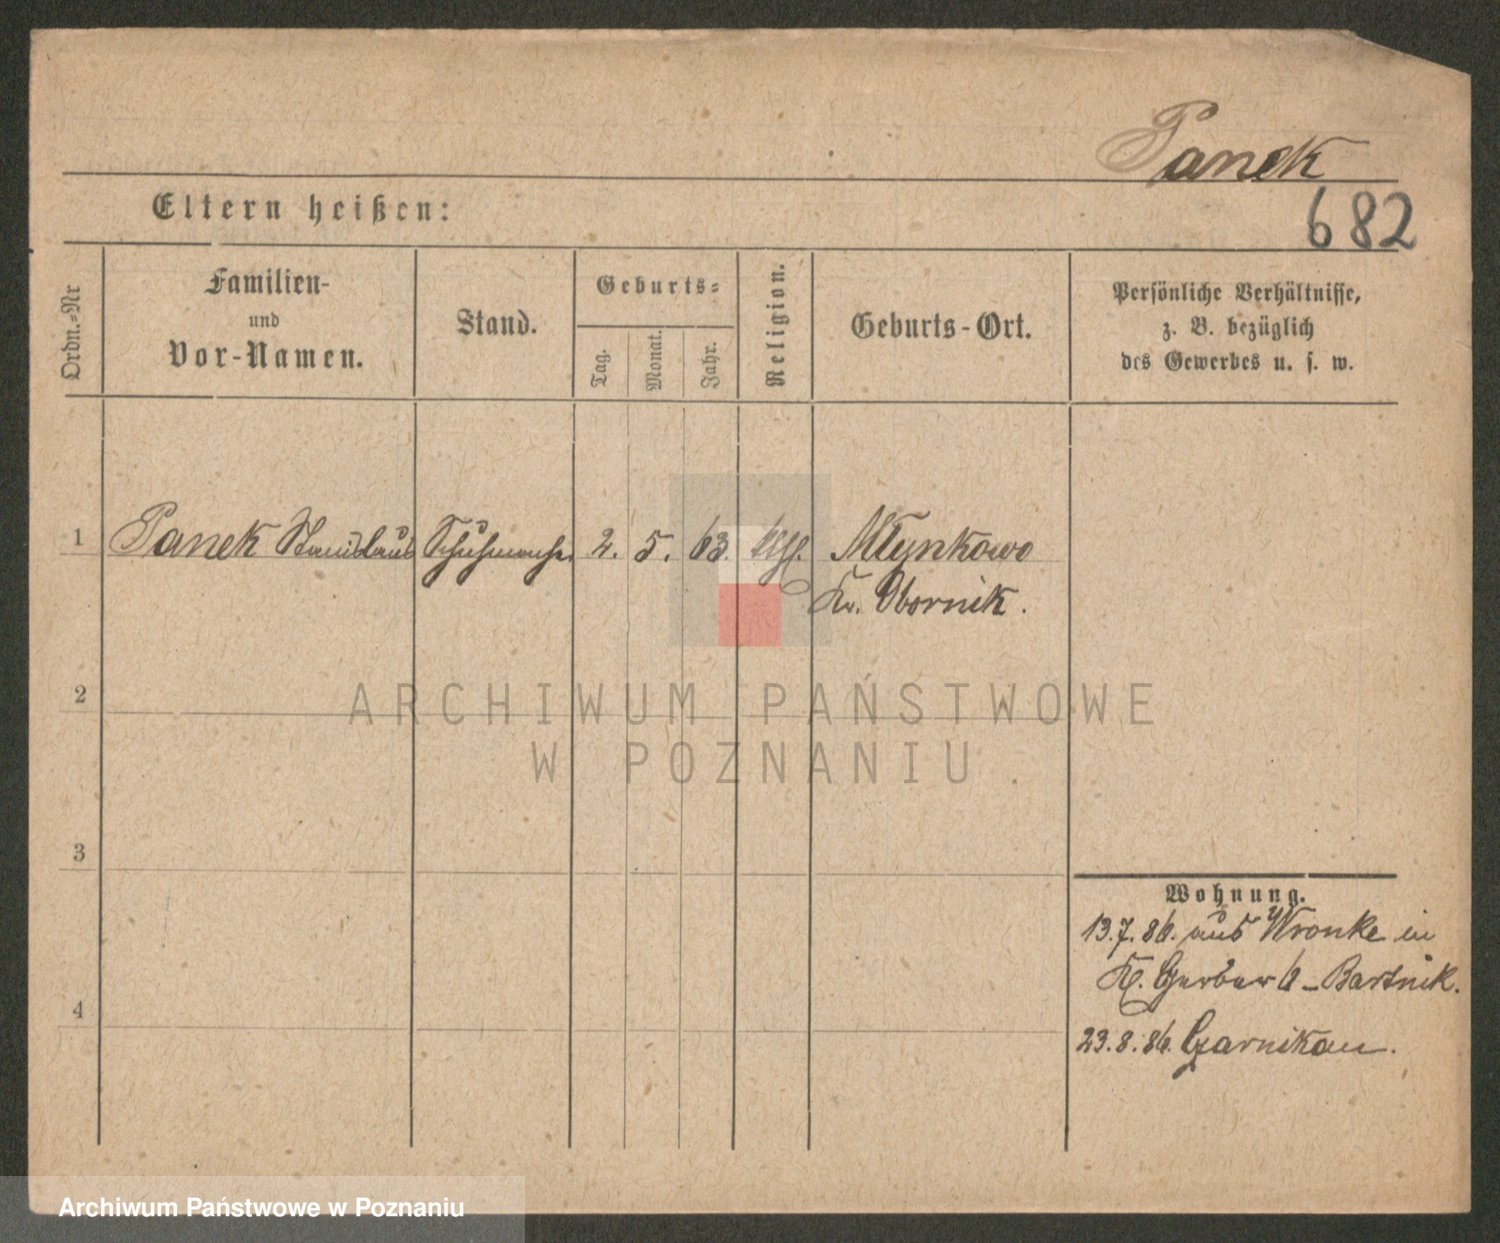 Panek
682
Eltern heißen:
Ordn.-Nr
Familien-
und
Vor-Namen.
Stand.
Geburts-
Tag.
Monat.
Jahr.
Religion.
Geburts-Ort.
Persönliche Verhältnisse,
z. B. bezüglich
des Gewerbes u. s. w.
1 Panek Stanislaus 2. 5. 63. Młynkowo
Kr. Obornik.
2
3
4
Wohnung.
13.7.86. aus Wronke in
Kl. Gerber 6 - Bartnik.
23.8.86. Czarnikau.
ARCHIWUM PAŃSTWOWE
W POZNANIU
Archiwum Państwowe w Poznaniu